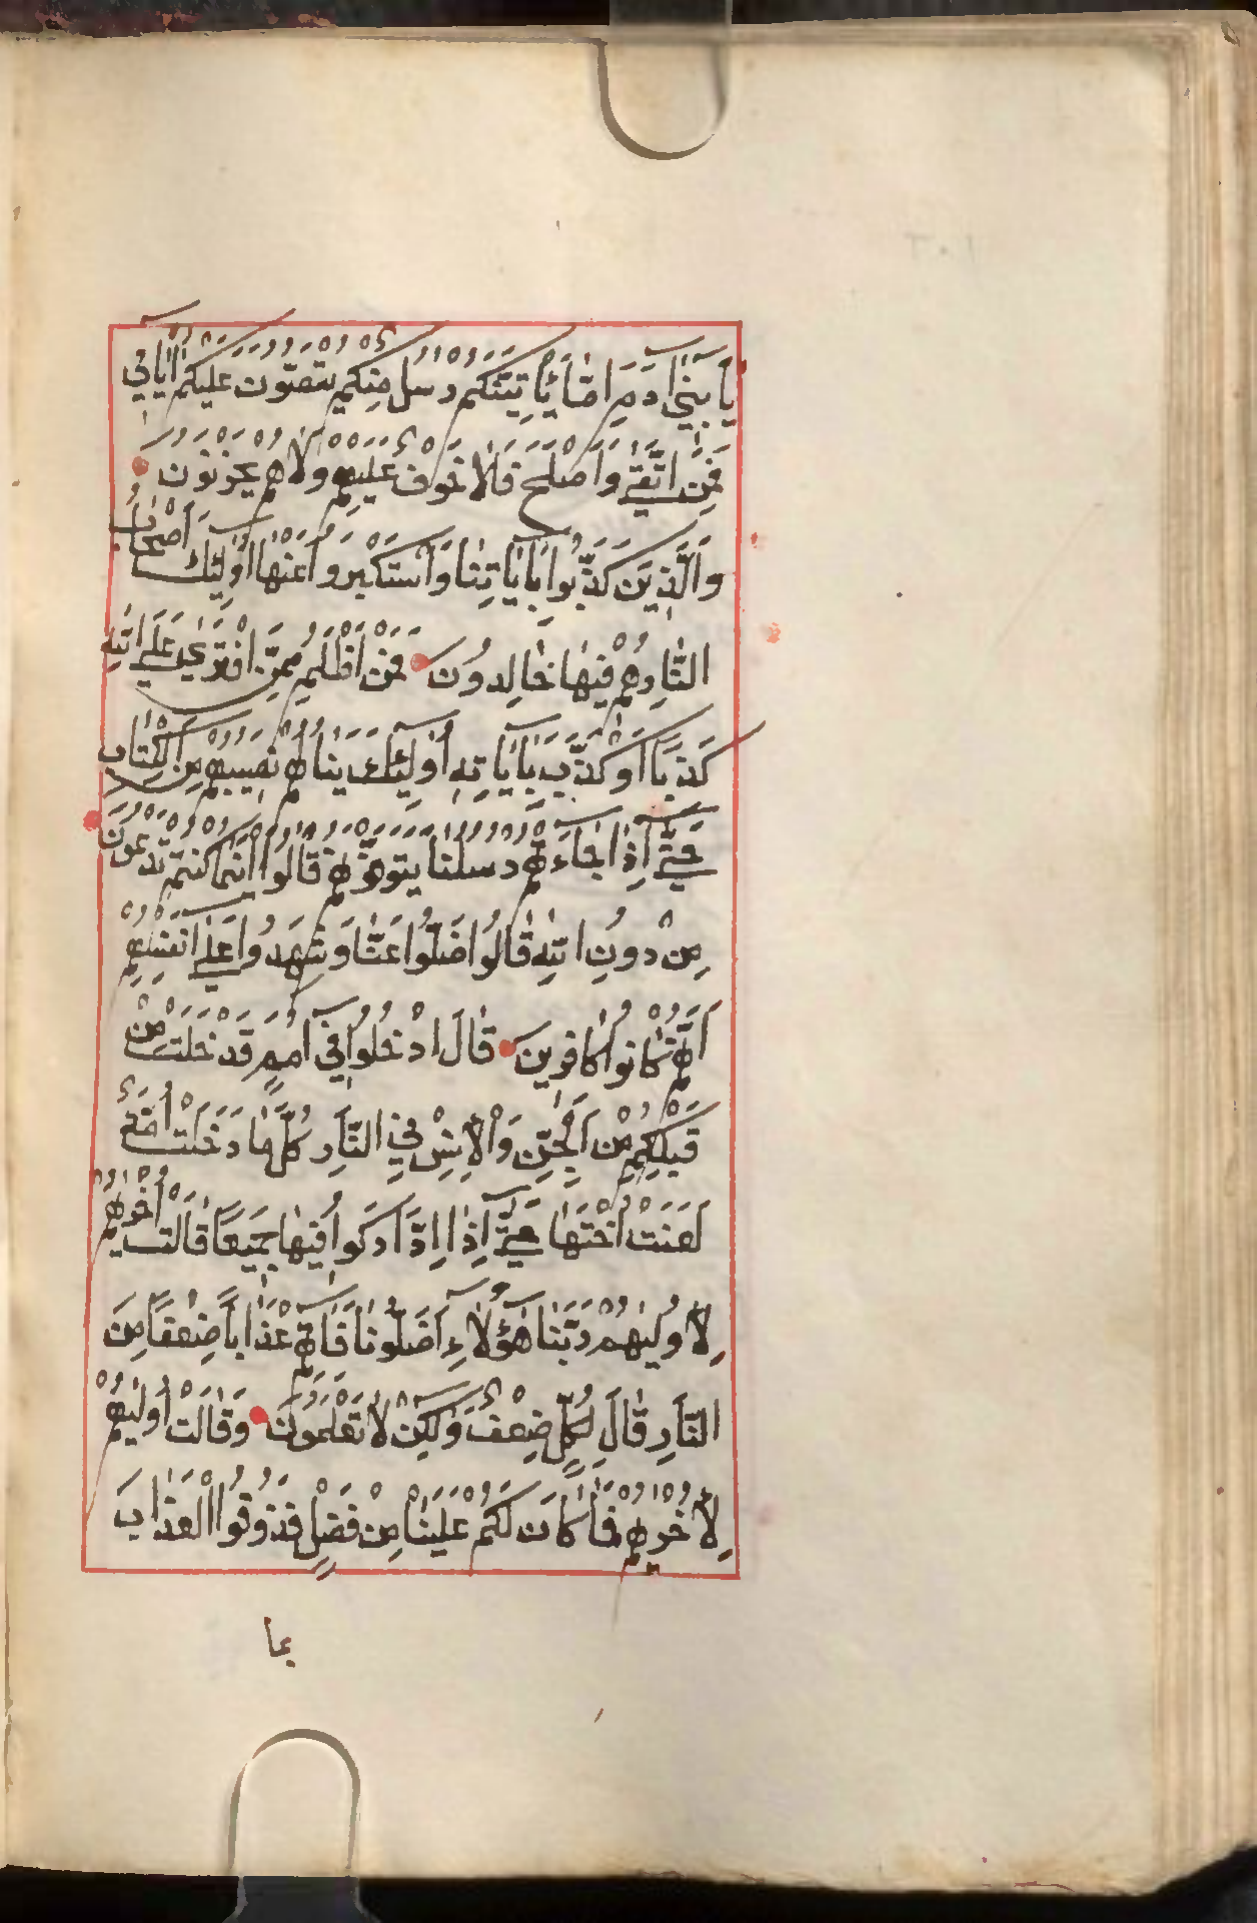 يَا بَنِي اٰدَمَ اِمَّا يَاْتِيَنَّكُمْ رُسُلٌ مِنْكُمْ يَقُصُّونَ عَلَيْكُمْ اٰيَاتِي
فَمَنِ اتَّقٰى وَاَصْلَحَ فَلَا خَوْفٌ عَلَيْهِمْ وَلَا هُمْ يَحْزَنُونَ
وَالَّذِينَ كَذَّبُوا بِاٰيَاتِنَا وَاسْتَكْبَرُوا عَنْهَا اُولٰئِكَ اَصْحَابُ
النَّارِ هُمْ فِيهَا خَالِدُونَ فَمَنْ اَظْلَمُ مِمَّنِ افْتَرٰى عَلَى اللّٰهِ
كَذِبًا اَوْ كَذَّبَ بِاٰيَاتِهِ اُولٰئِكَ يَنَالُهُمْ نَصِيبُهُمْ مِنَ الْكِتَابِ
حَتّٰى اِذَا جَاءَتْهُمْ رُسُلُنَا يَتَوَفَّوْنَهُمْ قَالُوا اَيْنَمَا كُنْتُمْ تَدْعُونَ
مِنْ دُونِ اللّٰهِ قَالُوا ضَلُّوا عَنَّا وَشَهِدُوا عَلٰى اَنْفُسِهِمْ
اَنَّهُمْ كَانُوا كَافِرِينَ قَالَ ادْخُلُوا فِي اُمَمٍ قَدْ خَلَتْ مِنْ
قَبْلِكُمْ مِنَ الْجِنِّ وَالْاِنْسِ فِي النَّارِ كُلَّمَا دَخَلَتْ اُمَّةٌ
لَعَنَتْ اُخْتَهَا حَتّٰى اِذَا ادَّارَكُوا فِيهَا جَمِيعًا قَالَتْ اُخْرٰيهُمْ
لِاُولٰيهُمْ رَبَّنَا هٰؤُلَاءِ اَضَلُّونَا فَاٰتِهِمْ عَذَابًا ضِعْفًا مِنَ
النَّارِ قَالَ لِكُلٍّ ضِعْفٌ وَلٰكِنْ لَا تَعْلَمُونَ وَقَالَتْ اُولٰيهُمْ
لِاُخْرٰيهُمْ فَمَا كَانَ لَكُمْ عَلَيْنَا مِنْ فَضْلٍ فَذُوقُوا الْعَذَابَ
بما